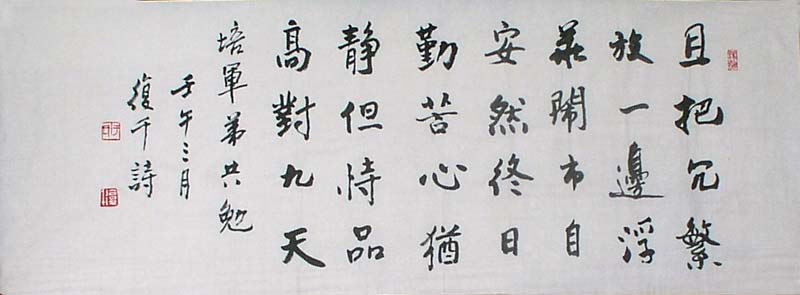 且把冗繁
放一邊浮
華鬧市自
安然終日
勤苦心猶
靜但恃品
高對九天
培軍弟共勉
壬午三月
復千詩